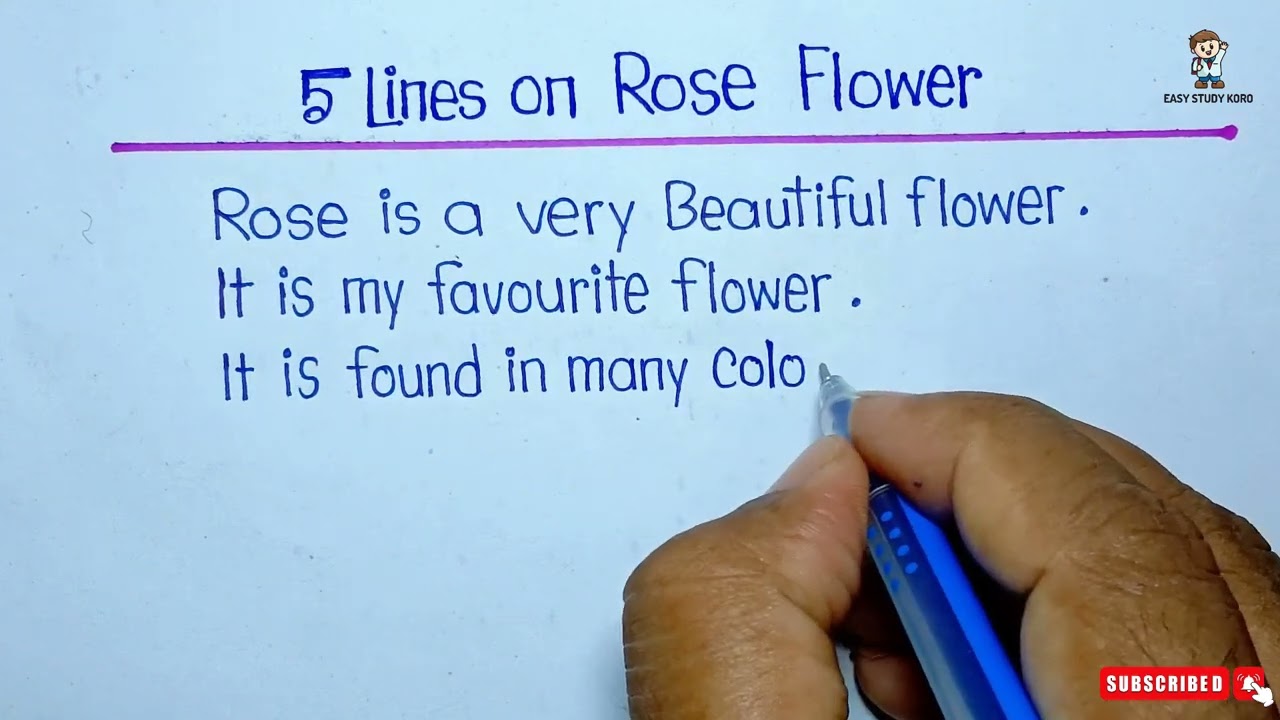 5 Lines on Rose Flower
EASY STUDY KORO
Rose is a very Beautiful flower.
It is my favourite flower.
It is found in many Colo
SUBSCRIBED